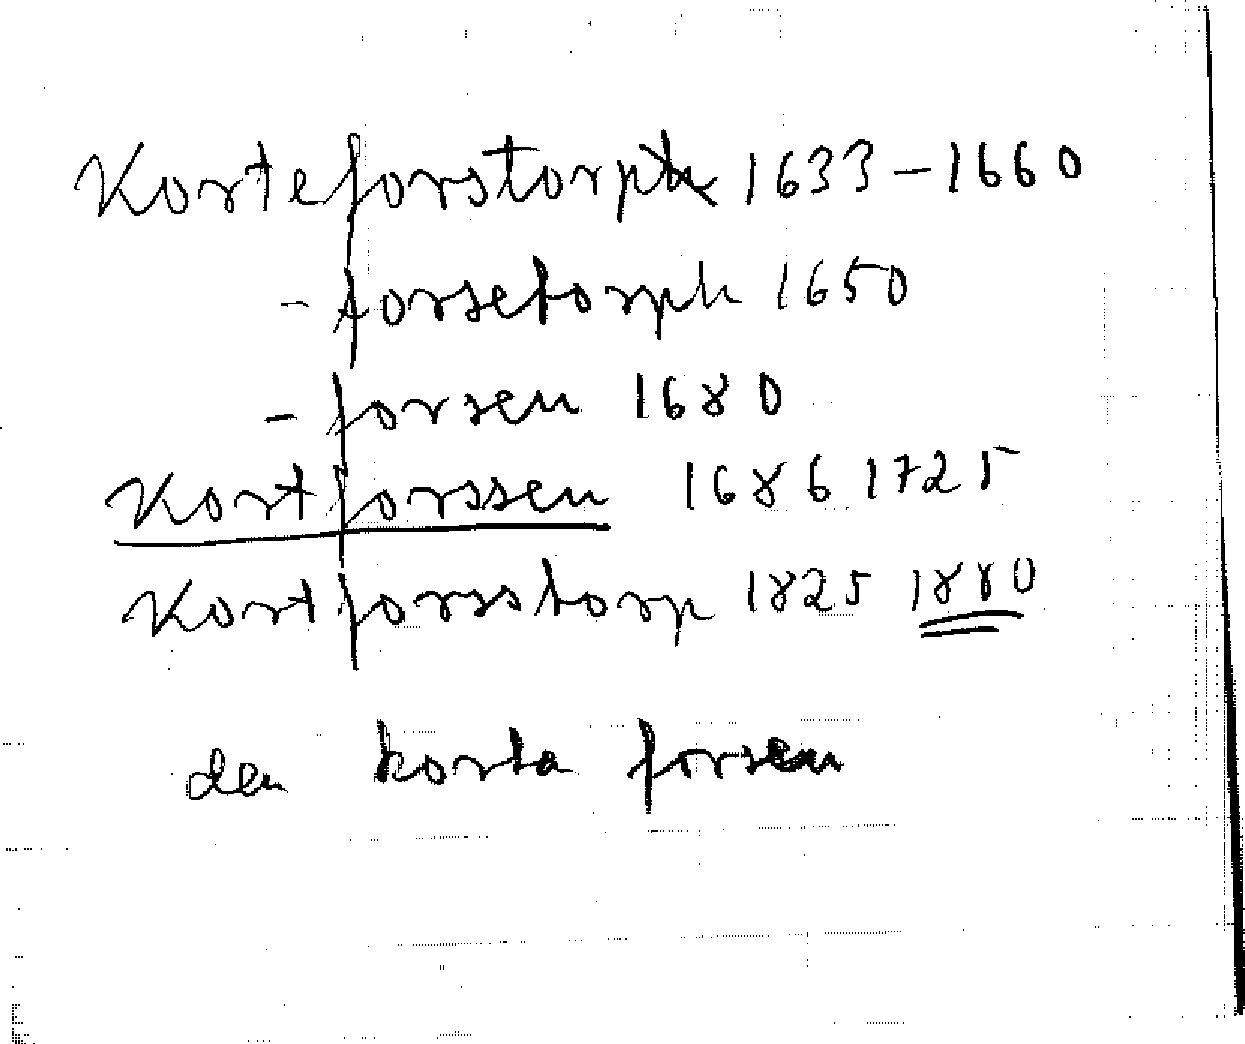 Korteforstorph 1633-1660
- forsetorph 1650
- forsen 1680
Kortforssen 1686 1725
Kortforsstorp 1825 1880
den korta forsen